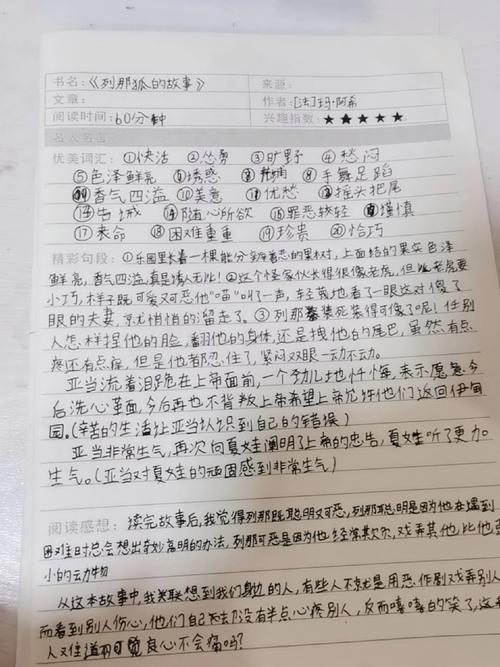 书名：《列那狐的故事》 来源：
文章： 作者：[法]玛·阿希
阅读时间：60分钟 兴趣指数：★★★★★
名人名言
优美词汇：①快活 ②怂恿 ③旷野 ④愁闷
⑤色泽鲜亮 ⑥诱惑 ⑧手舞足蹈
香气四溢 ⑩美意 忧愁 摇头把尾
告诫 随心所欲 罪恶较轻 谨慎
⑰丧命 ⑱困难重重 ⑲珍贵 ⑳恰巧
精彩句段：①乐园里长着一棵能分辨善恶的果树，上面结的果实色泽
鲜亮，香气四溢，真是诱人无比！②这个怪家伙长得很像老虎，但比老虎要
小巧，样子既可爱又可恶他"喵"叫了一声，轻蔑地看了一眼这对傻了
眼的夫妻，就悄悄的溜走了。③列那装死装得可像了呢！任别
人怎样捏他的脸，翻他的身体，还是拽他的尾巴，虽然有点
疼还有点痒，但是他都忍住了，紧闭双眼一动不动。
亚当流着泪跪在上帝面前，一个劲儿地忏悔，表示愿意今
后洗心革面，今后再也不背叛上帝希望上帝允许他们返回伊甸
园。(辛苦的生活让亚当认识到自己的错误)
亚当非常生气，再次向夏娃阐明了上帝的忠告，夏娃听了更加
生气。(亚当对夏娃的顽固感到非常生气)
阅读感想：读完故事后，我觉得列那既聪明又可恶，列那聪明是因为他在遇到
困难时总会想出奇妙高明的办法，列那可恶是因为他经常欺欠，戏弄其他比他
小的动物
从这本故事中，我关联想到我们身边的人，有些人不就是用恶作剧戏弄别人
而看到别人伤心，他们自己没有半点心疼别人，反而嘻嘻的笑了，这
人难道良心不会痛吗？